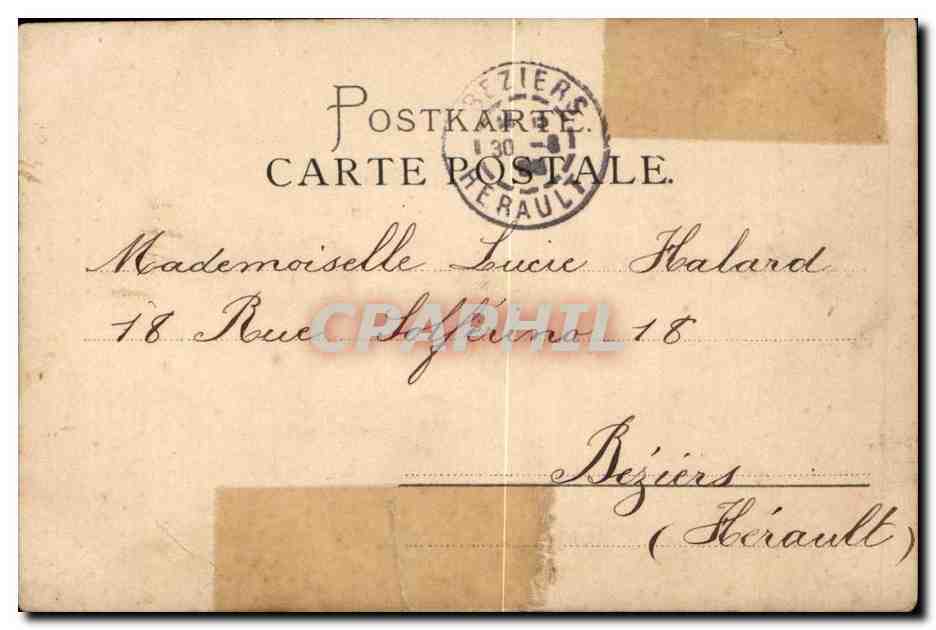 BEZIERS
30 -8
HERAULT
POSTKARTE.
CARTE POSTALE.
Mademoiselle Lucie Halard
18 Rue Solférino 18
CPAPHIL
Béziers
(Hérault)